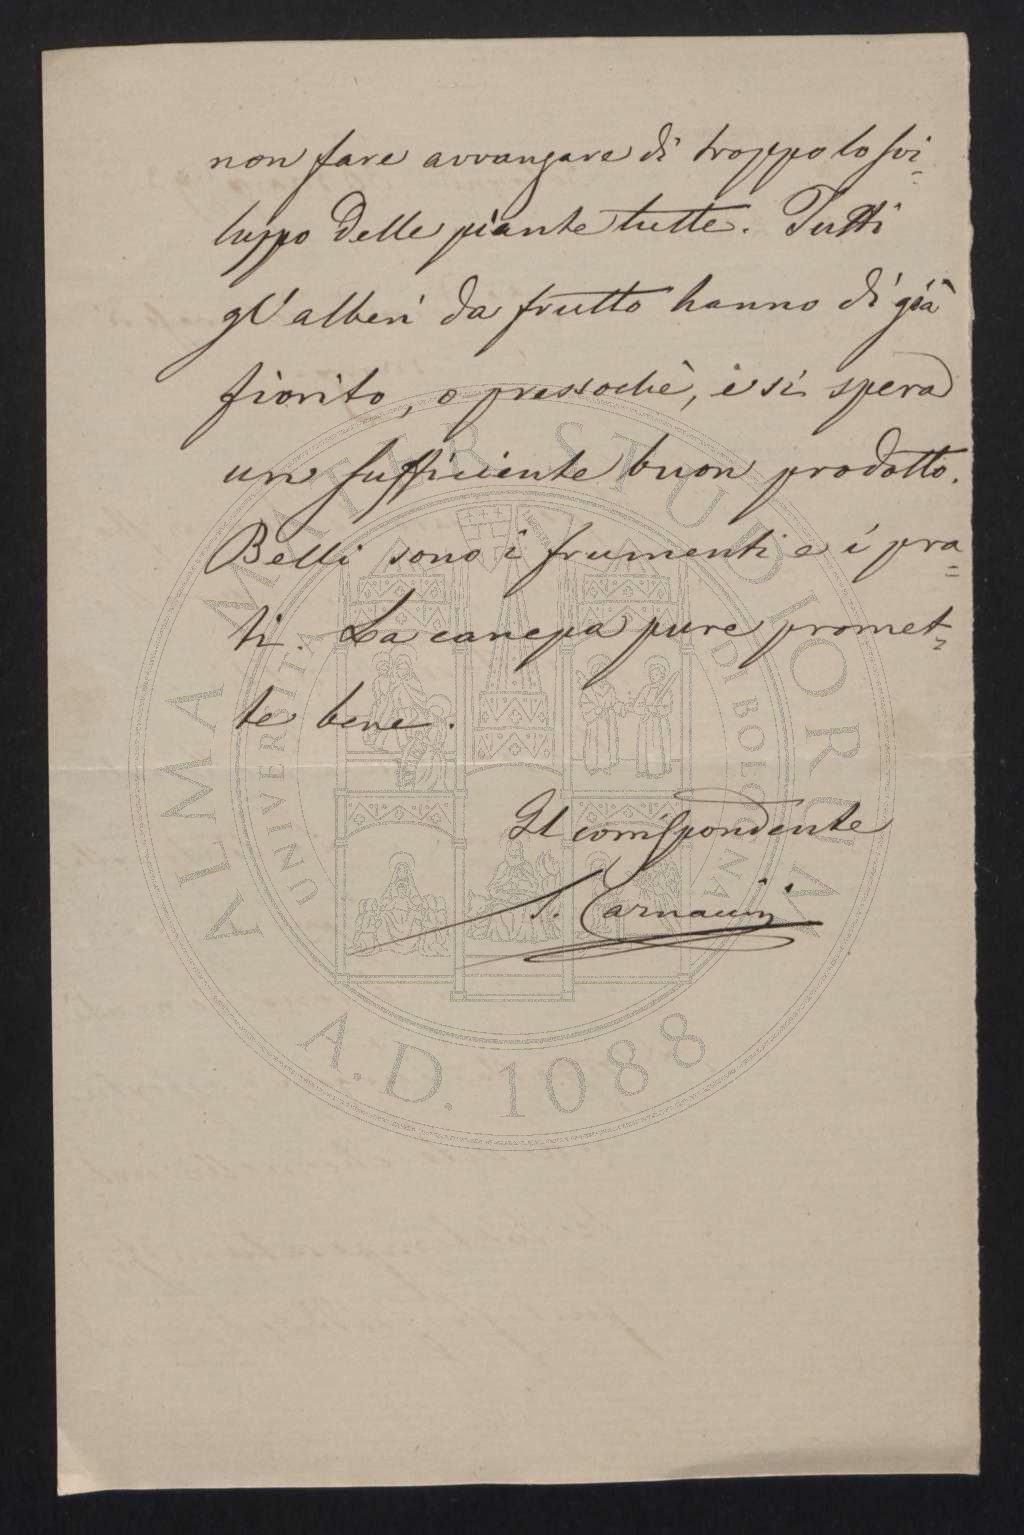 non fare avvangare di troppo lo svi=
luppo delle piante tutte. Tutti
gl'alberi da frutto hanno di già
fiorito, o pressochè, e si spera
un sufficiente buon prodotto.
Belli sono i frumenti e i pra=
ti. La canepa pure promet=
te bene.
Il corrispondente
ALMA MATER STUDIORUM
UNIVERSITÀ DI BOLOGNA
A.D. 1088